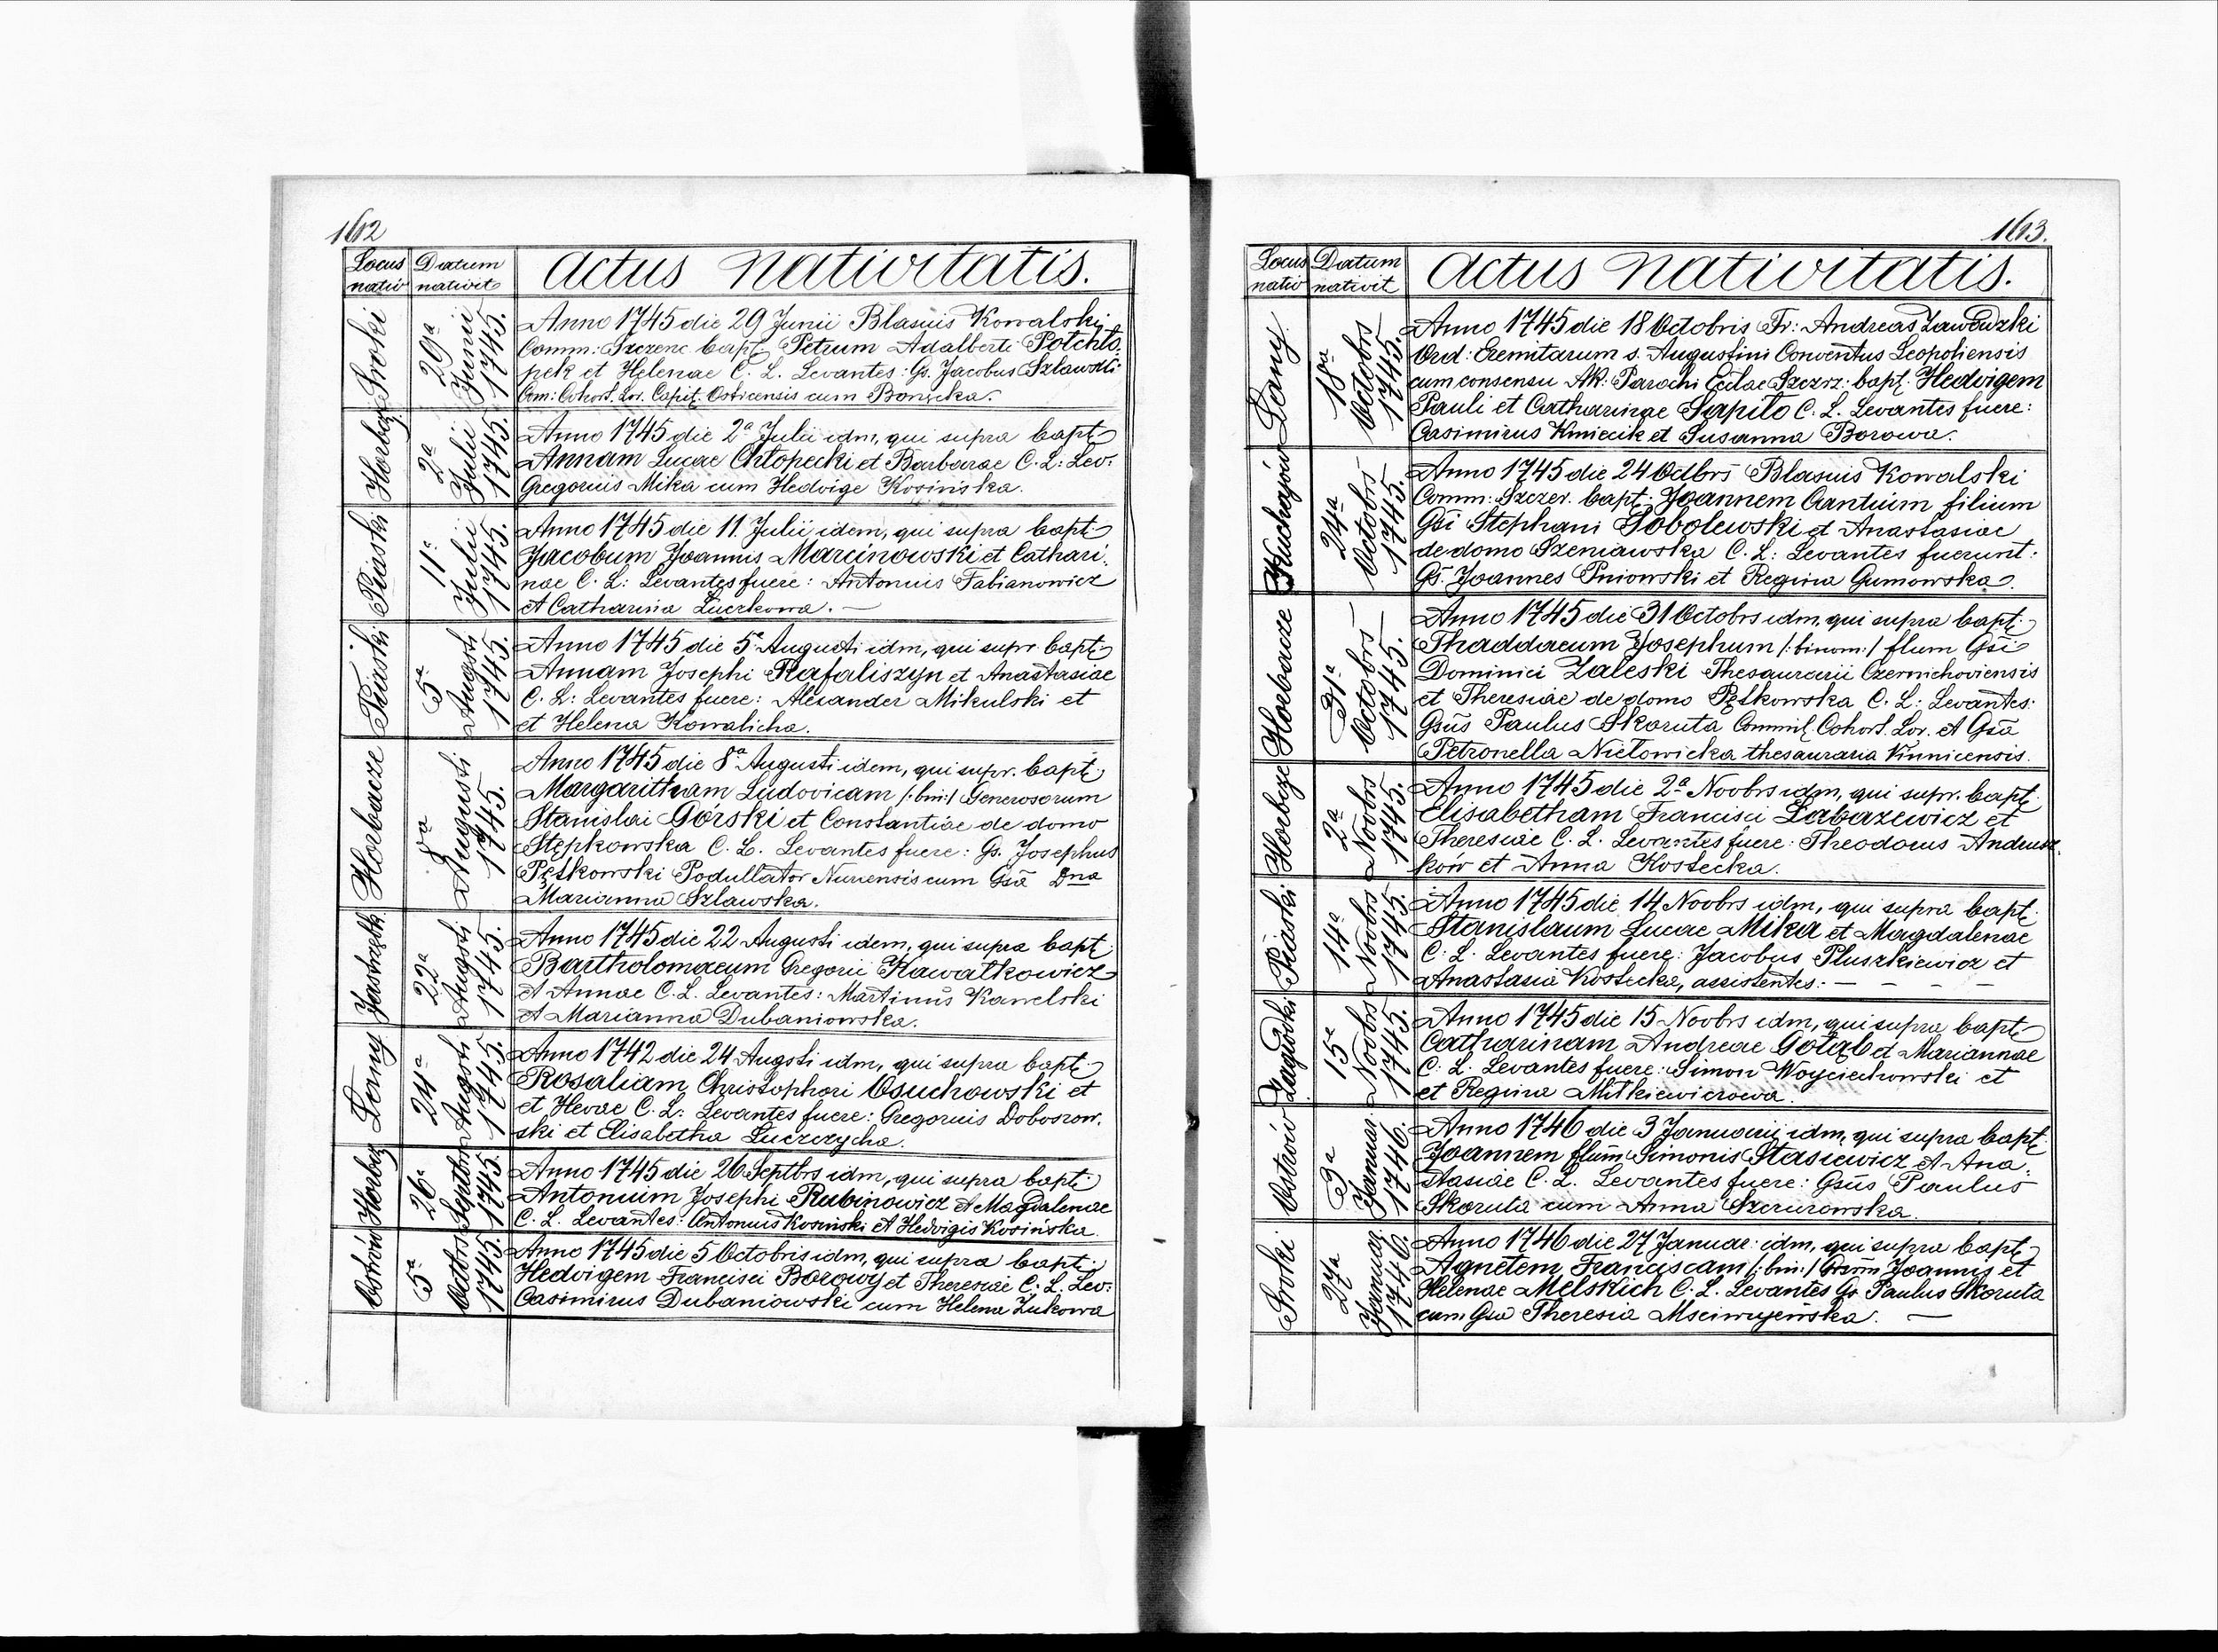 162
Locus nativ
Datum nativit
Actus Nativitatis.
Sroki
29ª Junii 1745.
Anno 1745 die 29 Junii Blasius Kowalski
Comm: Szczerc bapt: Petrum Adalberti Potchło,
pek et Helenae C. L. Levantes: Gs. Jacobus Szlawski
Com: Cohort. Lov. Capit. Ostricensis cum
Horbze
2ª Julii 1745.
Anno 1745 die 2ª Julii idm, qui supra bapt:
Annam Lucae Chłopecki et Barbarae C. L: Lev:
Gregorius Mika cum Hedvige Kosińska.
Piaski
11ª Julii 1745.
Anno 1745 die 11. Julii idem, qui supra bapt:
Jacobum Joannis Marcinowski et Cathari:
nae C. L: Levantes fuere: Antonius Fabianowicz
et Catharina Luczkowa. —
Piaski
5ª Augusti 1745.
Anno 1745 die 5ª Augusti idm, qui supr. bapt:
Annam Josephi Rafaliszyn et Anastasiae
C. L: Levantes fuere: Alexander Mikulski et
et Helena Kowalicha.
Horbacze
8ª Augusti 1745.
Anno 1745 die 8ª Augusti idem, qui supr. bapt:
Margaritham Ludovicam /:bin:/ Generosorum
Stanislai Górski et Constantiae de domo
Stępkowska C. L. Levantes fuere: Gs. Josephus
Pętkowski Podullator Nurensis cum Gsā Dna
Marianna Szlawska.
22ª Augusti 1745.
Anno 1745 die 22 Augusti idem, qui supra bapt:
Bartholomaeum Gregorii Kawałkowicz
et Annae C. L. Levantes: Martinus Kawelski
et Marianna Dubaniowska.
Łany
24ª Augsti 1745.
Anno 1742 die 24 Augsti idm, qui supra bapt:
Rosaliam Christophori Osuchowski et
et Hevae C. L: Levantes fuere: Gregorius Doboszow.
ski et Elisabetha Luczczycha.
Horbze
26ª Septbr 1745.
Anno 1745 die 26 Septbrs idm, qui supra bapt:
Antonium Josephi Rubinowicz et Magdalenae
C. L. Levantes: Antonius Kosinski et Hedvigis Kosińska.
Ostrów
5ª Octbris 1745.
Anno 1745 die 5 Octobris idm, qui supra bapt:
Hedvigem Francisci Borowy et Theresiae C. L. Lev:
Casimirus Dubaniowski cum Helena Zukowa
163.
Locus nativ
Datum nativit
Actus Nativitatis.
Łany
18ª Octobrs 1745.
Anno 1745 die 18 Octobris Fr: Andreas
Ord: Eremitarum s. Augustini Conventus Leopoliensis
cum consensu AR: Parochi Ecclae Szczrz: bapt. Hedvigem
Pauli et Catharinae Sapito C. L. Levantes fuere:
Casimirus Kmiecik et Susanna Borowa.
Huchajów
24ª Octobrs 1745.
Anno 1745 die 24 Octbrs Blasius Kowalski
Comm: Szczer. bapt: Joannem Cantium filium
Gsi Stephani Sobolewski et Anastasiae
de domo Szeniawska C. L: Levantes fuerunt:
Gs. Joannes Pniowski et Regina Gumowska.
Horbacze
31ª Octobrs 1745.
Anno 1745 die 31 Octobrs idm, qui supra bapt:
Thaddaeum Josephum /:binom:/ flum Gsi
Dominici Zaleski Thesaurarii Czernichoviensis
et Theresiae de domo Pętkowska C. L: Levantes:
Gsūs Paulus Skoruta Commil. Cohort. Lov. et Gsā
Petronella Nietowicka thesauraria Vinnicensis.
Horbcze
2ª Novbrs 1745.
Anno 1745 die 2ª Novbrs idm, qui supr. bapt:
Elisabetham Francisci Łabazewicz et
Theresiae C. L. Levantes fuere: Theodorus Andrusz.
ków et Anna Kostecka.
Piaski
14ª Novbrs 1745.
Anno 1745 die 14 Novbrs idm, qui supra bapt:
Stanislaum Lucae Mika et Magdalenae
C. L. Levantes fuere: Jacobus Pluszkiewicz et
Anastasia Kostecka, assistentes: — — — —
Zagródki
15ª Novbrs 1745.
Anno 1745 die 15 Novbrs idm, qui supra bapt:
Catharinam Andreae Gołąb et Mariannae
C. L. Levantes fuere: Simon Woyciechowski et
et Regina Mitkiewiczowa.
Ostrów
3ª Januar. 1746.
Anno 1746 die 3 Januarii idm, qui supra bapt:
Joannem flum Simonis Stasiewicz et Ana.
stasiae C. L. Levantes fuere: Gsūs Paulus
Skoruta cum Anna Szczurowska.
Sroki
27ª Januar 1746.
Anno 1746 die 27 Januar: idm, qui supra bapt:
Agnetem Franciscam /:bin:/ Gsrum Joannis et
Helenae Melskich C. L. Levantes Gs Paulus Skoruta
cum Gsa Theresia Msciwujewska. —